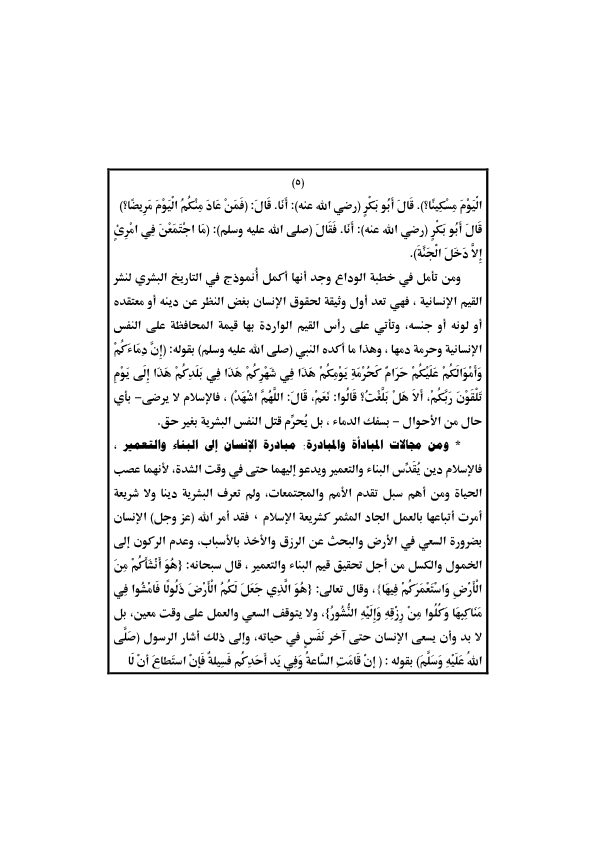 (٥)
الْيَوْمَ مِسْكِينًا؟). قَالَ أَبُو بَكْرٍ (رضي الله عنه): أَنَا. قَالَ: (فَمَنْ عَادَ مِنْكُمُ الْيَوْمَ مَرِيضًا؟)
قَالَ أَبُو بَكْرٍ (رضي الله عنه): أَنَا. فَقَالَ (صلى الله عليه وسلم): (مَا اجْتَمَعْنَ فِي امْرِئٍ
إِلاَّ دَخَلَ الْجَنَّةَ).
ومن تأمل في خطبة الوداع وجد أنها أكمل أُنموذج في التاريخ البشري لنشر
القيم الإنسانية ، فهي تعد أول وثيقة لحقوق الإنسان بغض النظر عن دينه أو معتقده
أو لونه أو جنسه، وتأتي على رأس القيم الواردة بها قيمة المحافظة على النفس
الإنسانية وحرمة دمها ، وهذا ما أكده النبي (صلى الله عليه وسلم) بقوله: (إِنَّ دِمَاءَكُمْ
وَأَمْوَالَكُمْ عَلَيْكُمْ حَرَامٌ كَحُرْمَةِ يَوْمِكُمْ هَذَا فِي شَهْرِكُمْ هَذَا فِي بَلَدِكُمْ هَذَا إِلَى يَوْمِ
تَلْقَوْنَ رَبَّكُمْ، أَلاَ هَلْ بَلَّغْتُ؟ قَالُوا: نَعَمْ، قَالَ: اللَّهُمَّ اشْهَدْ) ، فالإسلام لا يرضى– بأي
حال من الأحوال – بسفك الدماء ، بل يُحرِّم قتل النفس البشرية بغير حق.
* ومن مجالات المبادأة والمبادرة: مبادرة الإنسان إلى البناء والتعمير ،
فالإسلام دين يُقَدِّس البناء والتعمير ويدعو إليهما حتى في وقت الشدة، لأنهما عصب
الحياة ومن أهم سبل تقدم الأمم والمجتمعات، ولم تعرف البشرية دينا ولا شريعة
أمرت أتباعها بالعمل الجاد المثمر كشريعة الإسلام ، فقد أمر الله (عز وجل) الإنسان
بضرورة السعي في الأرض والبحث عن الرزق والأخذ بالأسباب، وعدم الركون إلى
الخمول والكسل من أجل تحقيق قيم البناء والتعمير ، قال سبحانه: {هُوَ أَنْشَأَكُمْ مِنَ
الْأَرْضِ وَاسْتَعْمَرَكُمْ فِيهَا}، وقال تعالى: {هُوَ الَّذِي جَعَلَ لَكُمُ الْأَرْضَ ذَلُولًا فَامْشُوا فِي
مَنَاكِبِهَا وَكُلُوا مِنْ رِزْقِهِ وَإِلَيْهِ النُّشُورُ}، ولا يتوقف السعي والعمل على وقت معين، بل
لا بد وأن يسعى الإنسان حتى آخر نَفَسٍ في حياته، وإلى ذلك أشار الرسول (صَلَّى
اللهُ عَلَيْهِ وَسَلَّمَ) بقوله : ( إِنْ قَامَتِ السَّاعَةُ وَفِي يَدِ أَحَدِكُم فَسِيلَةٌ فَإِنْ اسْتَطَاعَ أَنْ لَا